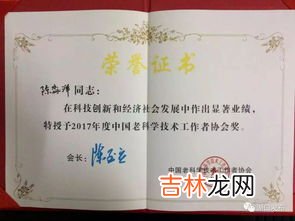 荣誉证书
同志：
在科技创新和经济社会发展中作出显著业绩，
特授予2017年度中国老科学技术工作者协会奖。
会长：
中国老科学技术工作者协会
吉林龙网